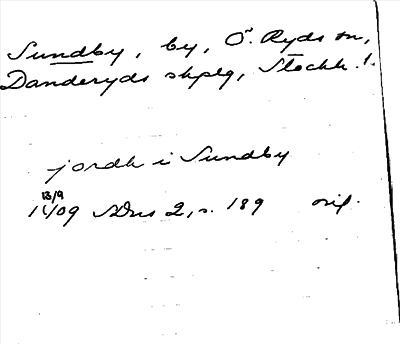 Sundby, by, Ö. Ryds sn,
Danderyds skplg, Stockh. l.
jordh i Sundby
13/9
1409 SDns 2, s. 189 orig.